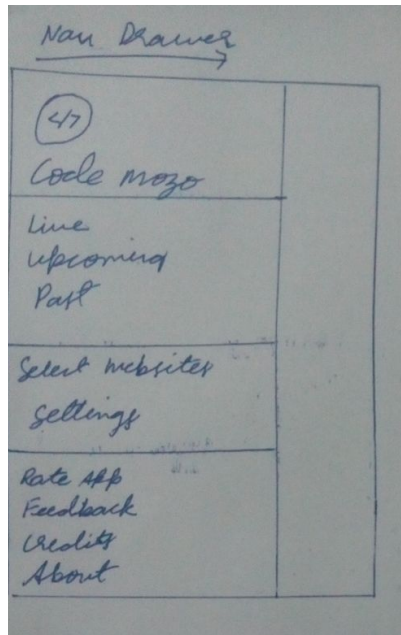 Nav Drawer
</>
Code mozo
Live
Upcoming
Past
Select Websites
Settings
Rate App
Feedback
Credits
About